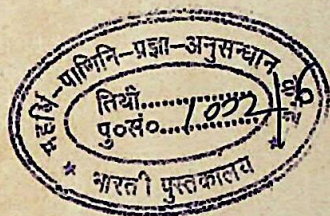 महर्षि-पाणिनि-प्रज्ञा-अनुसन्धान
तिथौ..................
पु०सं०....1002
* भारती पुस्तकालय *